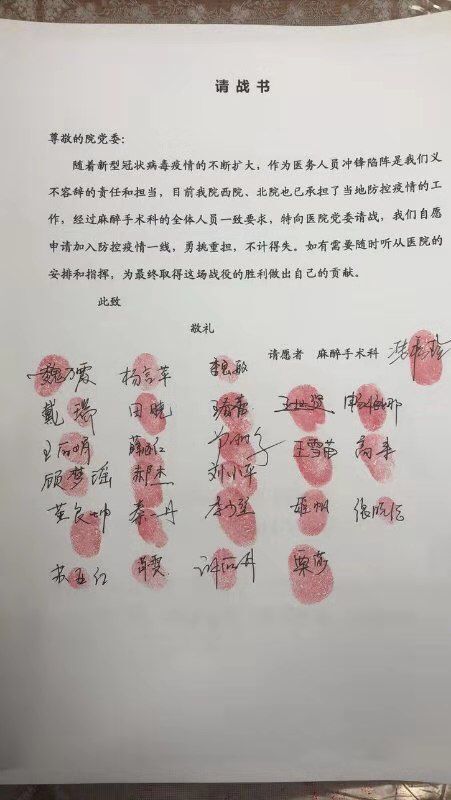 请战书
尊敬的院党委：
随着新型冠状病毒疫情的不断扩大，作为医务人员冲锋陷阵是我们义
不容辞的责任和担当，目前我院西院、北院也已承担了当地防控疫情的工
作，经过麻醉手术科的全体人员一致要求，特向医院党委请战，我们自愿
申请加入防控疫情一线，勇挑重担，不计得失。如有需要随时听从医院的
安排和指挥，为最终取得这场战役的胜利做出自己的贡献。
此致
敬礼
请愿者 麻醉手术科
魏乃霞 杨言苹 魏敏
戴瑞 田晓
王雪苗
顾梦瑶 郝杰 刘小车
秦丹
苏亚红 许丽丹